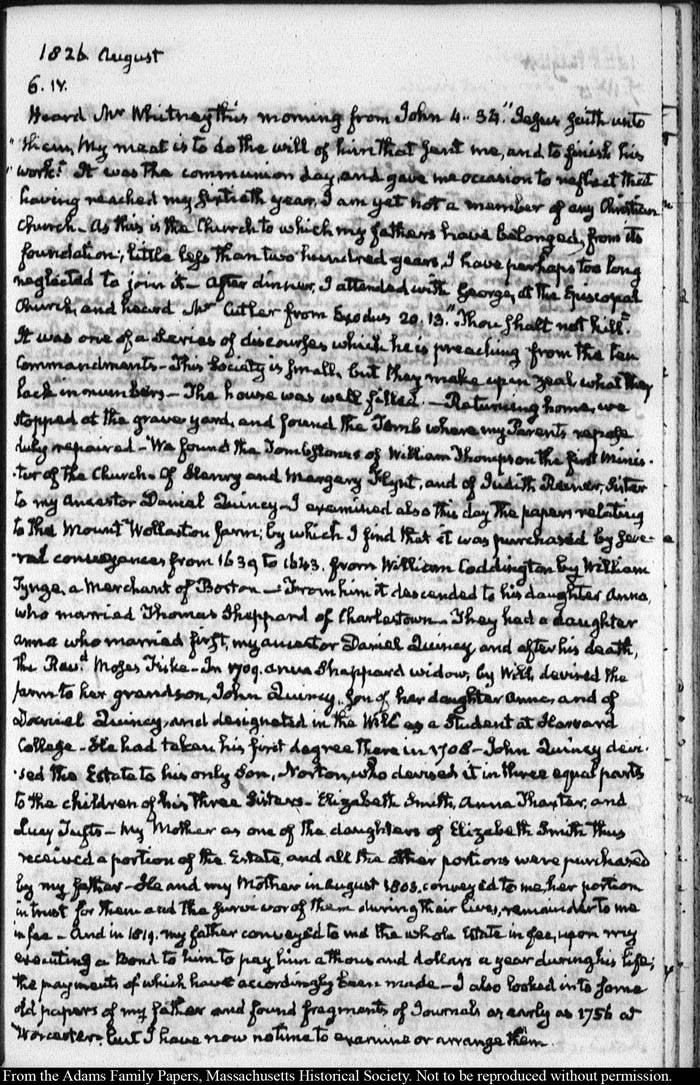 1826. August
6. IV.
Heard Mr Whitney this morning from John 4. 34. "Jesus saith unto
"them, My meat is to do the will of him that sent me, and to finish his
"work." It was the communion day, and gave me occasion to reflect that
having reached my sixtieth year, I am yet not a member of any Christian
Church. As this is the Church to which my fathers have belonged, from its
foundation, little less than two hundred years, I have perhaps too long
neglected to join it — After dinner, I attended with George, at the Episcopal
Church, and heard Mr Cutler from Exodus 20. 13. "Thou shalt not kill."
It was one of a Series of discourses which he is preaching from the ten
Commandments — This Society is small, but they make up in zeal what they
lack in numbers — The house was well filled. — Returning home, we
stopped at the grave yard, and found the Tomb where my Parents repose
duly repaired — We found the Tombstones of William Thompson the first Minis-
-ter of the Church — Of Henry and Margery Flynt, and of Judith Reiner, Sister
to my Ancestor Daniel Quincy — I examined also this day the papers relating
to the Mount Wollaston farm; by which I find that it was purchased by seve-
-ral conveyances from 1639 to 1643. from William Coddington by William
Tynge, a Merchant of Boston — From him it descended to his daughter Anna,
who married Thomas Sheppard of Charlestown — They had a daughter
Anna who married first, my ancestor Daniel Quincy and after his death,
the Revd. Moses Fiske — In 1709. Anna Sheppard widow, by Will, devised the
farm to her grandson, John Quincy, Son of her daughter Anna, and of
Daniel Quincy, and designated in the Will as a Student at Harvard
College — He had taken his first degree there in 1708 — John Quincy devi-
-sed the Estate to his only Son, Norton, who devised it in three equal parts
to the children of his three Sisters — Elizabeth Smith, Anna Thaxter, and
Lucy Tufts — My Mother as one of the daughters of Elizabeth Smith thus
received a portion of the Estate, and all the other portions were purchased
by my father — He and my Mother in August 1803. conveyed to me, her portion
in trust for them and the survivor of them during their lives, remainder to me
in fee — And in 1819. my father conveyed to me the whole Estate in fee, upon my
executing a Bond to him to pay him a thousand dollars a year during his life;
the payments of which have accordingly been made — I also looked into some
old papers of my father and found fragments of Journals as early as 1756 at
Worcester, but I have now no time to examine or arrange them.
From the Adams Family Papers, Massachusetts Historical Society. Not to be reproduced without permission.